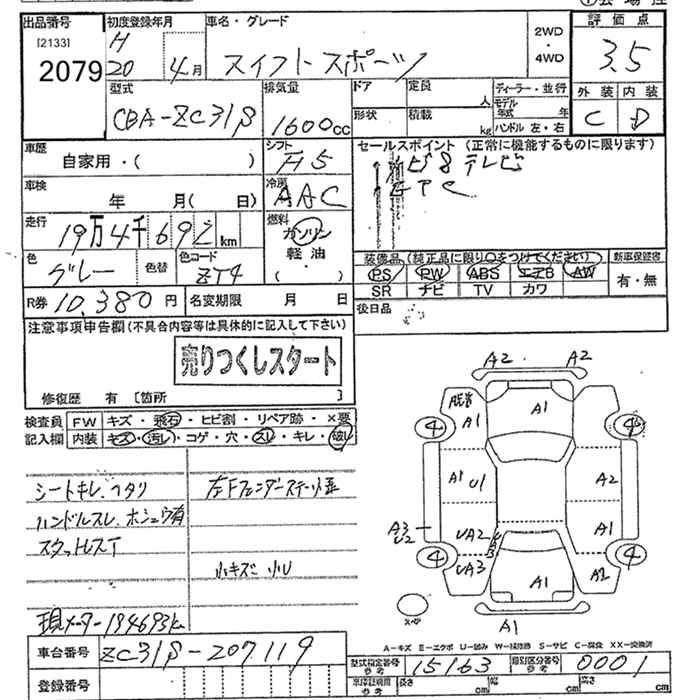 出品番号
[2133]
2079
初度登録年月
H
20 4月
車名・グレード
スイフトスポーツ
2WD
・
4WD
評価点
3.5
外装 内装
C D
型式
CBA-ZC31S
排気量
1600cc
ドア
定員
人
形状
積載
kg
ディーラー・並行
モデル
年式 年
ハンドル 左・右
車歴
自家用・( )
シフト
F5
セールスポイント (正常に機能するものに限ります)
ナビ テレビ
ETC
車検
年 月( 日)
冷房
AAC
走行
19万4千692km
燃料
ガソリン
軽油
( )
色
グレー
色替
色コード
ZT4
装備品 (純正品に限り○をつけてください)
PS PW ABS エアB AW
SR ナビ TV カワ
新車保証書
有・無
R券 10,380円
名変期限 月 日
後日品
注意事項申告欄(不具合内容等は具体的に記入して下さい)
売りつくしスタート
修復歴 有 〔箇所 〕
検査員
記入欄
FW キズ・飛石・ヒビ割・リペア跡・×要
内装 キズ・汚れ・コゲ・穴・スレ・キレ・破レ
シートキレ、ヘタリ
ハンドルスレ、ホシュウ有
スタットレスT
左Fフェンダーステー
小キズ 小U
現メーター194693km
A2 A2
A1
A1
4 4
A1 U1
A2
A3
U2
UA2
A1
4 4
UA3
A1
A2
スペア
A1
A-キズ E-エクボ U-凹み W-補修跡 S-サビ C-腐食 XX-交換済
車台番号
ZC31S-207119
登録番号
型式指定番号
参考
15163
類別区分番号
参考
0001
車庫証明用
参考
長さ cm
幅 cm
高さ cm